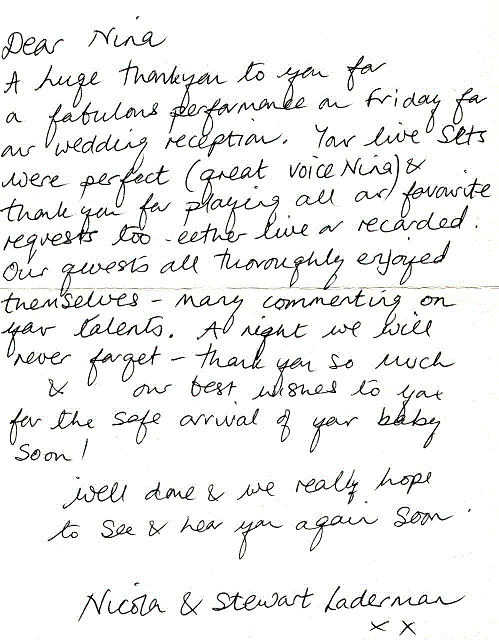 Dear Nina
A huge thankyou to you for
a fabulous performance on Friday for
our wedding reception. Your live sets
were perfect (great voice Nina) &
thank you for playing all our favourite
requests too - either live or recorded.
Our guests all thoroughly enjoyed
themselves - many commenting on
your talents. A night we will
never forget - thank you so much
& our best wishes to you
for the safe arrival of your baby
soon!
well done & we really hope
to see & hear you again soon.
Nicola & Stewart Laderman
x x